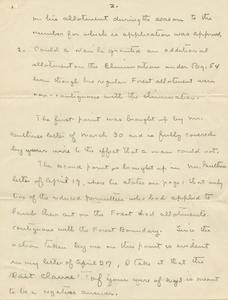 2.
on his allotment during the season to the
number for which his application was approved
2. Could a man be granted an additional
allotment on the Elimination under Reg. G4
even though his regular Forest allotment were
non-contiguous with the elimination.
The first point was brought up by Mr.
letter of March 30 and is fully covered
by your wire to the effect that a man could not.
The second point is brought up in Mr.
letter of April 19, where he states on page 1 that only
two of the reduced permittees who had applied to
lamb their ewes on the Forest had allotments
contiguous with the Forest Boundary. Since the
action taken by me on this point is evident
in my letter of April 27, I take it that the
last clause of your wire of is meant
to be a negative answer.